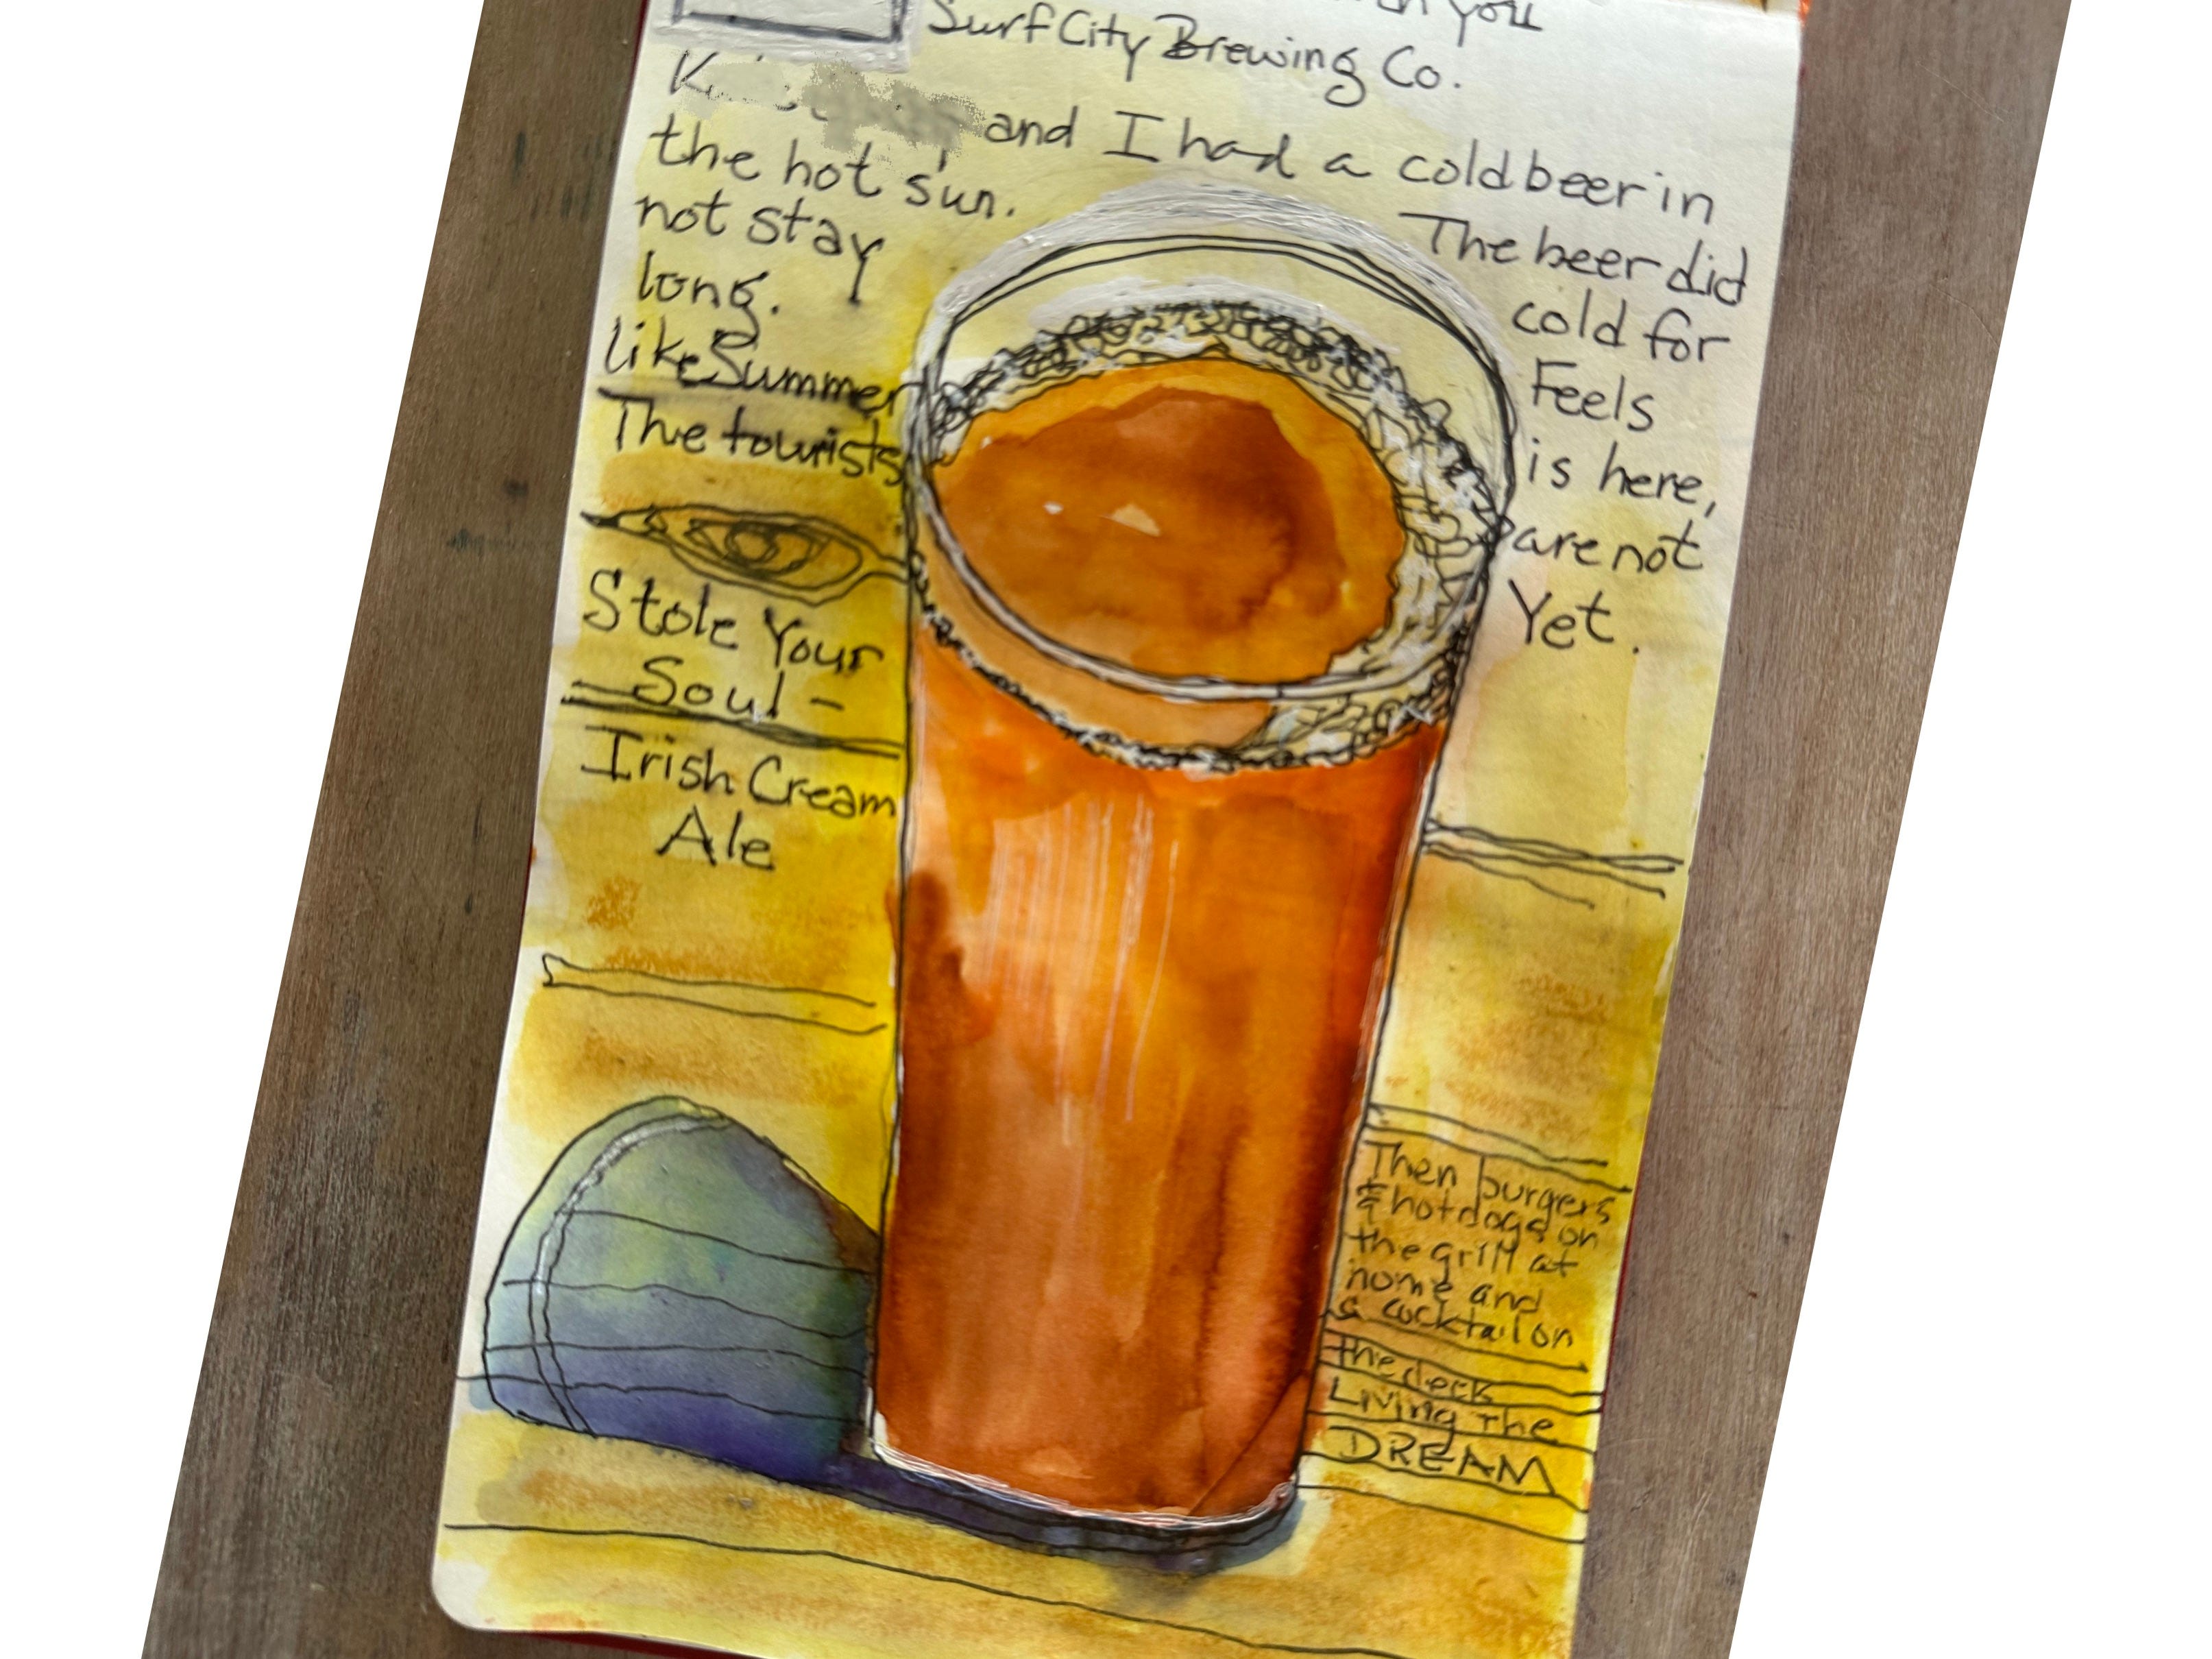 you
Surf City Brewing Co.
and I had a cold beer in
the hot sun. The beer did
not stay cold for
long. Feels
like Summer is here,
The tourists are not
Yet.
Stole Your
Soul -
Irish Cream
Ale
Then burgers
& hotdogs on
the grill at
home and
a cocktail on
the deck
Living the
DREAM